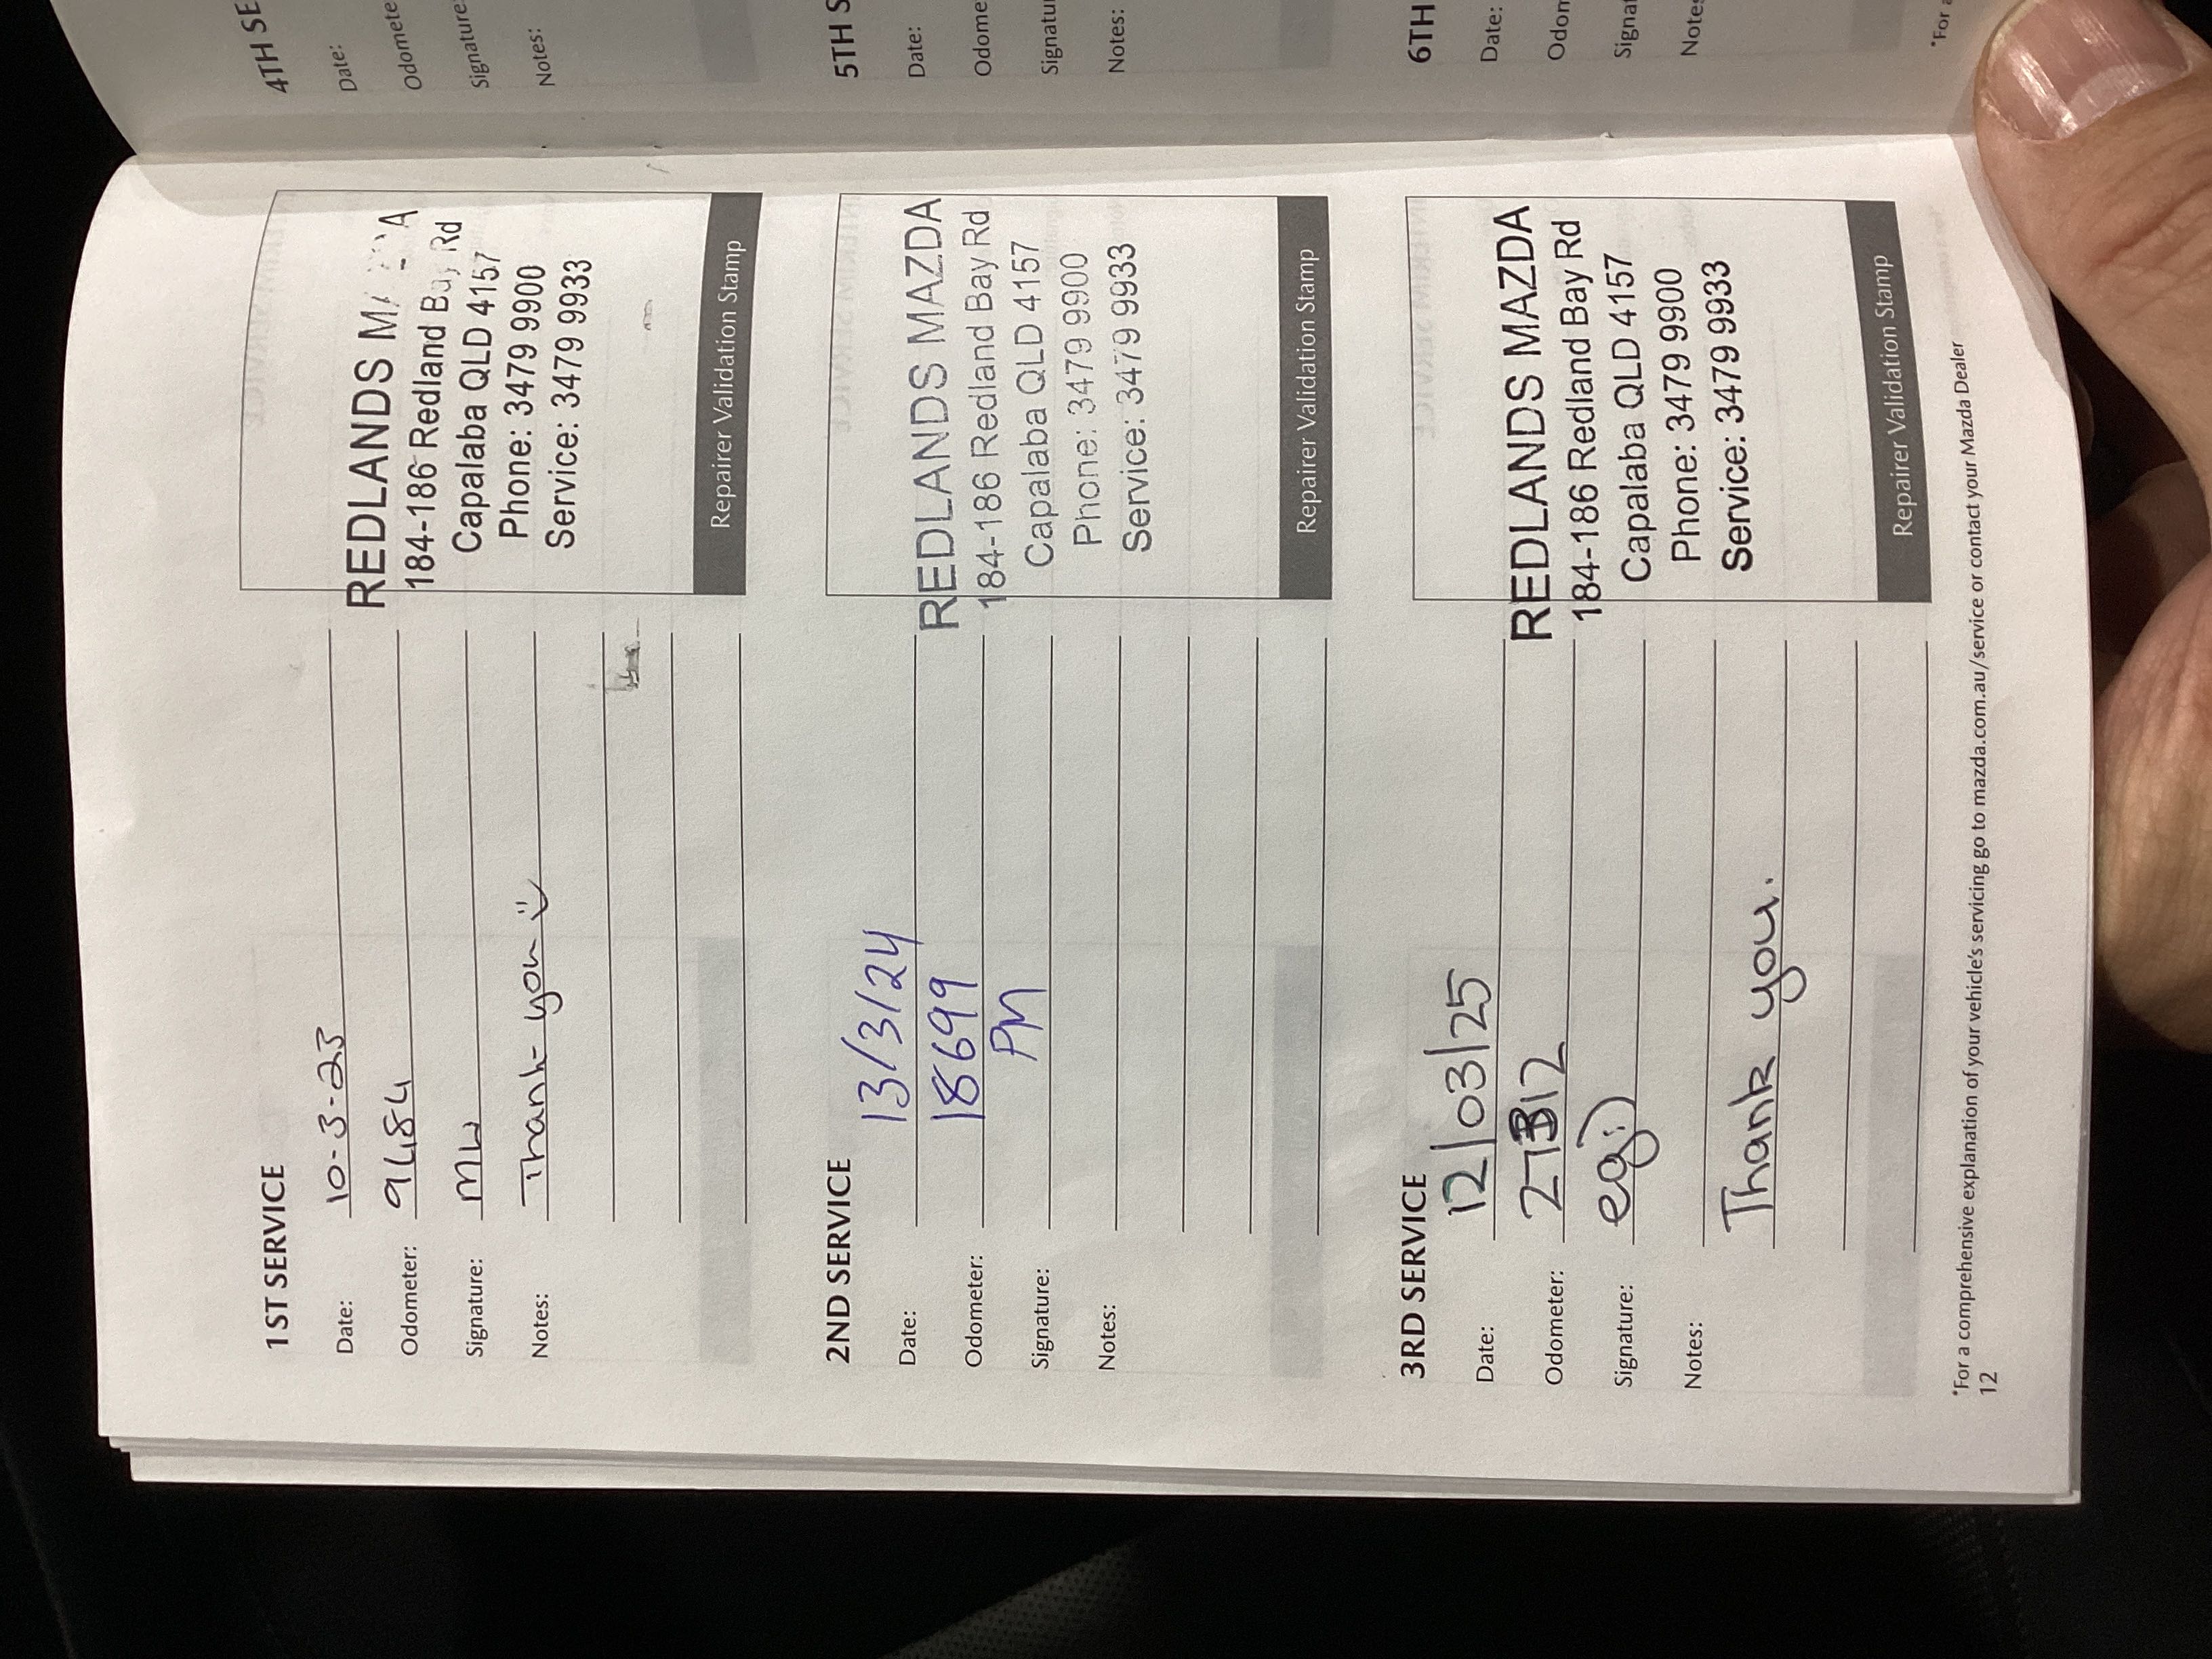 1ST SERVICE
Date: 10-3-23
Odometer: 9484
Signature: MW
Notes: Thank-you
REDLANDS
184-186 Redland Bay Rd
Capalaba QLD 4157
Phone: 3479 9900
Service: 3479 9933
Repairer Validation Stamp
2ND SERVICE
Date: 13/3/24
Odometer: 18699
Signature: PM
Notes:
REDLANDS MAZDA
184-186 Redland Bay Rd
Capalaba QLD 4157
Phone: 3479 9900
Service: 3479 9933
Repairer Validation Stamp
3RD SERVICE
Date: 12/03/25
Odometer:
Signature:
Notes:
Thank you.
REDLANDS MAZDA
184-186 Redland Bay Rd
Capalaba QLD 4157
Phone: 3479 9900
Service: 3479 9933
Repairer Validation Stamp
*For a comprehensive explanation of your vehicle's servicing go to mazda.com.au/service or contact your Mazda Dealer
12
4TH SE
Date:
Odomete
Signature:
Notes:
5TH S
Date:
Odome
Signatu
Notes:
6TH
Date:
Odom
Signat
Notes
*For a